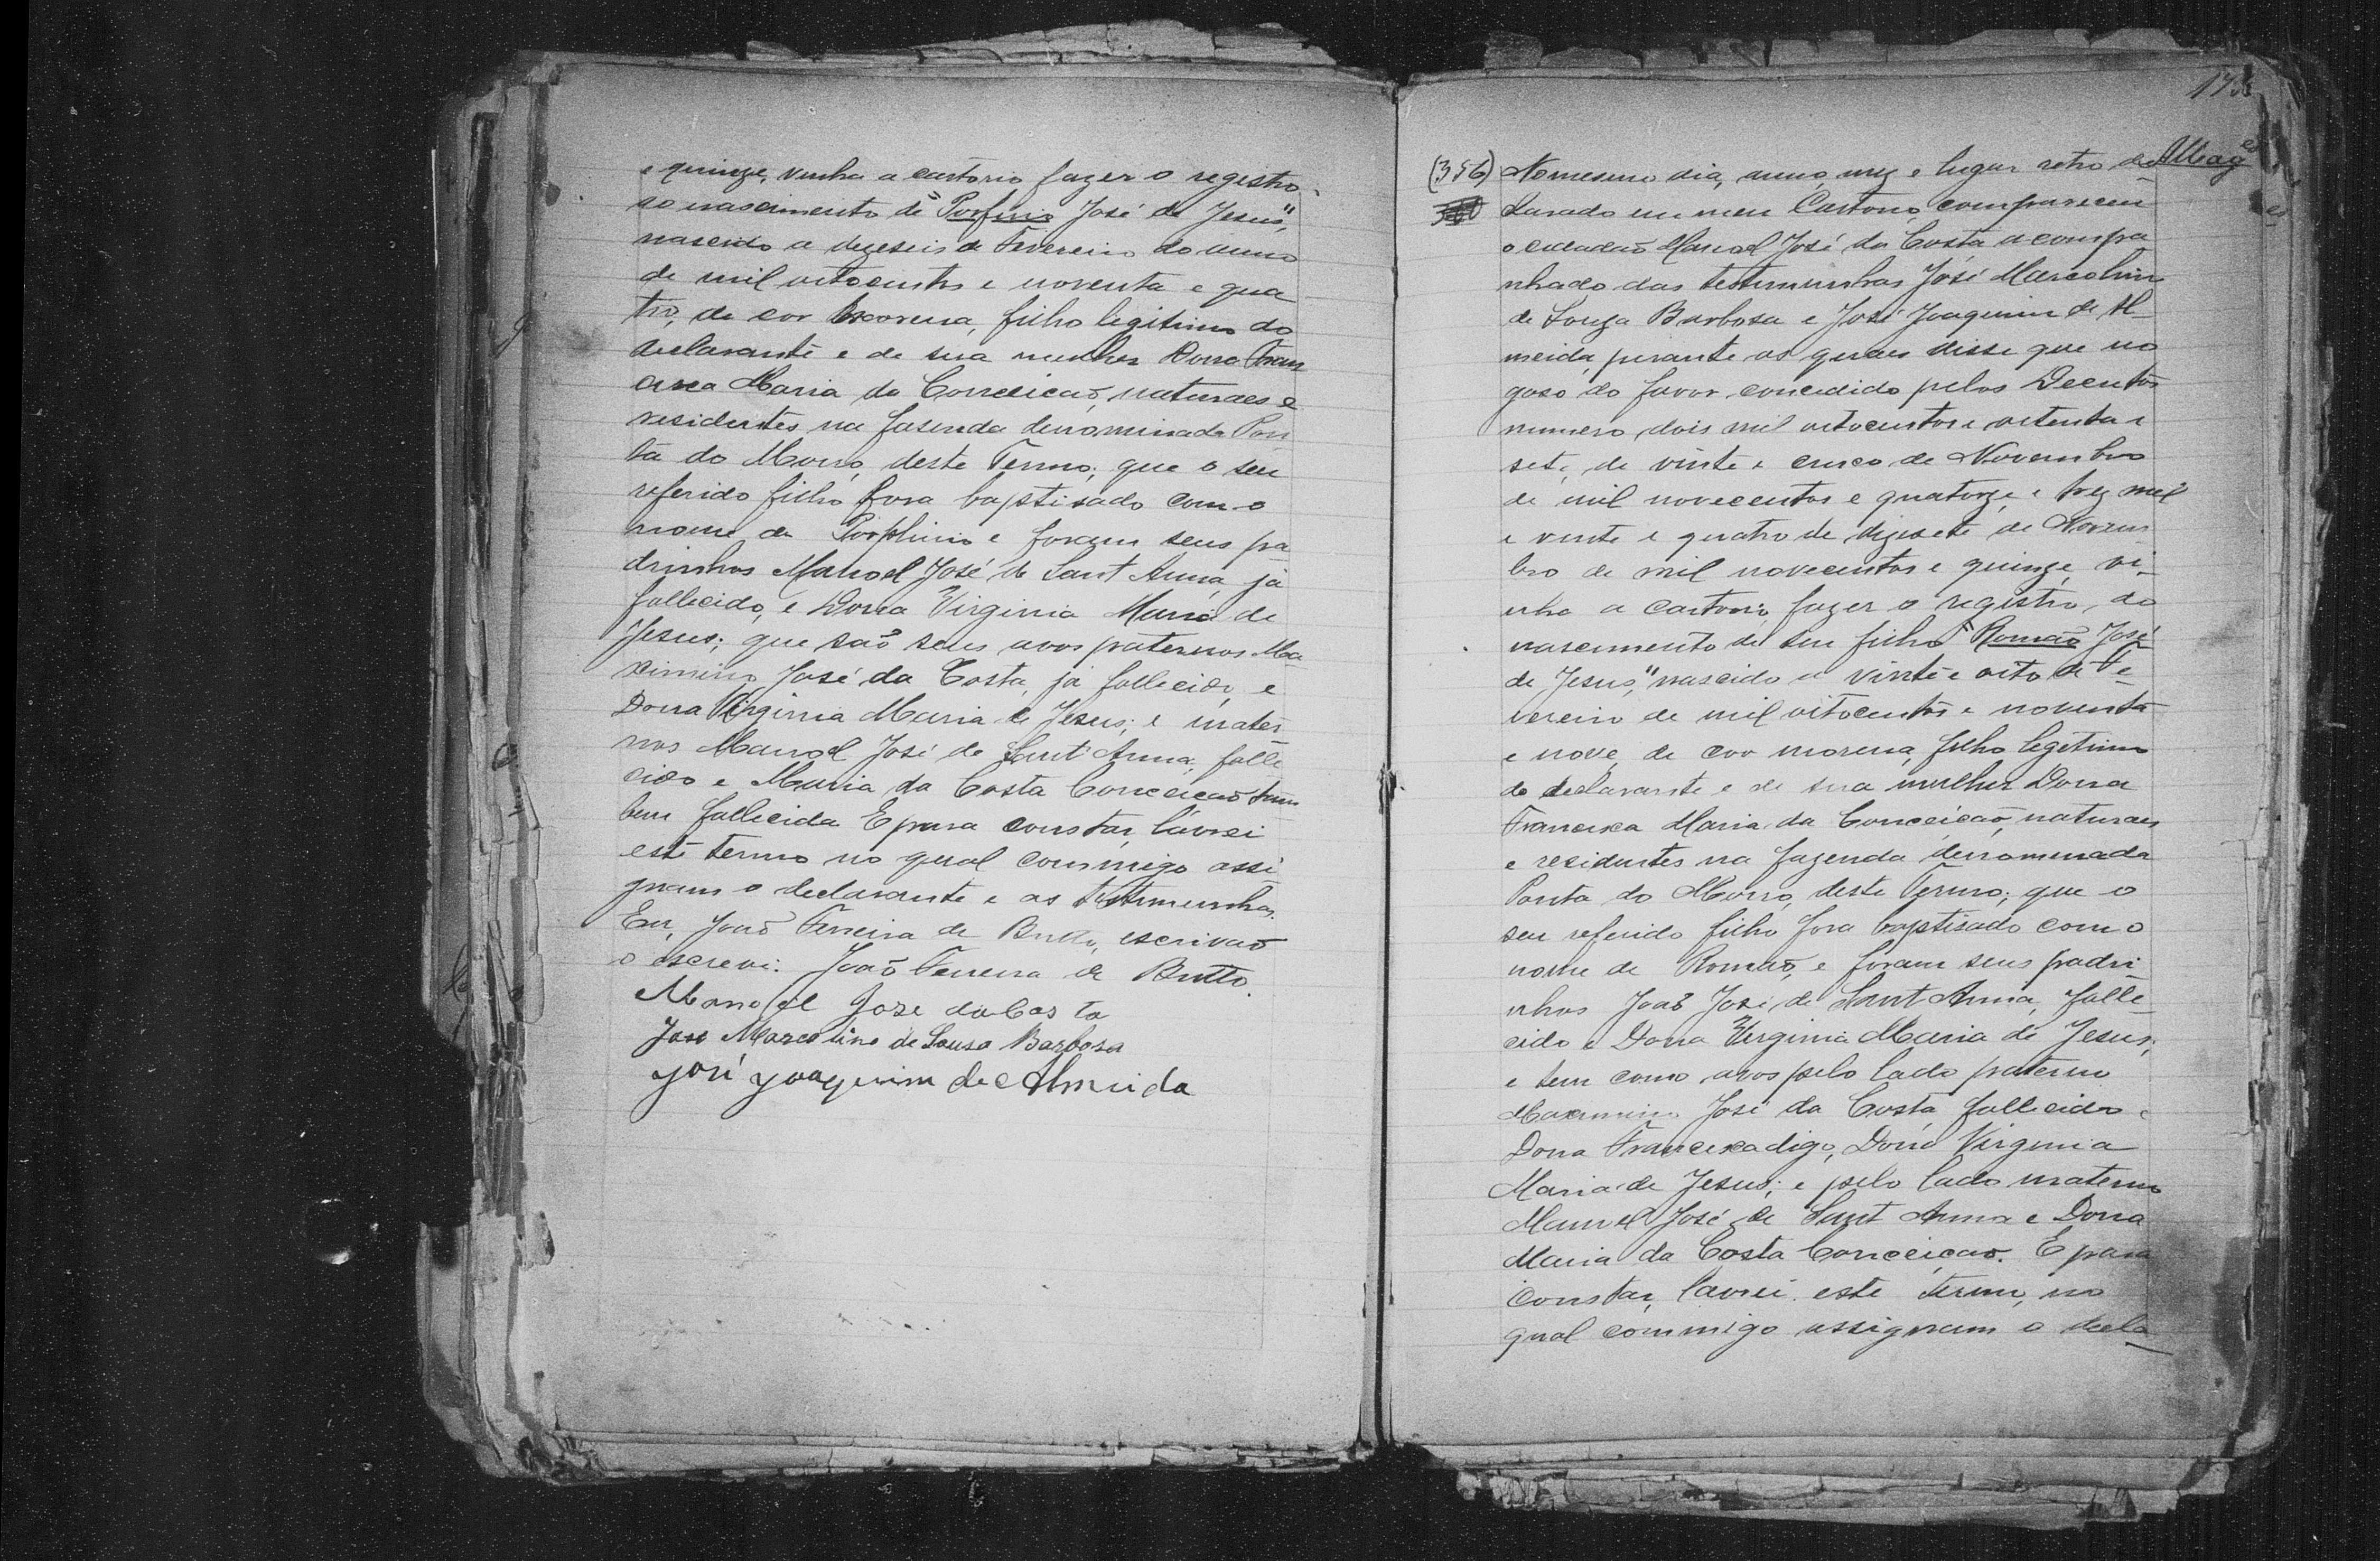 e quinze, vinha a cartorio fazer o registro
do nascimento de "Porfirio José de Jesus",
nascido a dezeseis de Fevereiro do anno
de mil oitocentos e noventa e qua
tro, de cor morena, filho legitimo do
declarante e de sua mulher Dona Fran
cisca Maria da Conceicaõ, naturaes e
residentes na fasenda denominada Pon
ta do Morro, deste Termo; que o seu
referido filho fora baptisado com o
nome de Porphirio e foram seus pa
drinhos Manoel José de Sant Anna, já
fallecido, e Dona Virginia Maria de
Jesus; que saõ seus avos paternos Ma
ximino José da Costa, já fallecido, e
Dona Virginia Maria de Jesus; e mater
nos Manoel José de Sant'Anna, falle
cido e Maria da Costa Conceicaõ tam
bem fallecida E para constar, lavrei
este termo no qual commigo assi
gnam o declarante e as testimunhas.
Eu, Joaõ Ferreira de Britto, escrivaõ
o escrevi. Joaõ Ferreira de Britto.
Manoel Joze da Cos ta
Jose Marcolino de Sousa Barbosa
José Joaquim de Almeida
173
(356) No mesmo dia, anno, mez e lugar retro de
clarado em meu Cartorio compareceu
o cidadaõ Manoel José da Costa acompa
nhado das testimunhas José Marcolino
de Souza Barbosa e José Joaquim de Al
meida, perante as quaes disse que no
goso do favor concedido pelos Decretos
numero dois mil oitocentos e oitenta e
sete, de vinte e cinco de Novembro
de mil novecentos e quatorze, e trez mil
e vinte e quatro de dezesete de Novem
bro de mil novecentos e quinze, vi-
nha a cartorio fazer o registro do
nascimento de seu filho "Romaõ José
de Jesus," nascido a vinte e oito de Fe
vereiro de mil oitocentos e noventa
e nove, de cor morena, filho legitimo
do declarante e de sua mulher Dona
Francisca Maria da Conceicaõ, naturaes
e residentes na fazenda denominada
Ponta do Morro, deste Termo; que o
seu referido filho fora baptisado com o
nome de Romaõ, e foram seus padri
nhos Joaõ José de Sant Anna, falle
cido e Dona Virginia Maria de Jesus;
e tem como avos pelo lado paterno
Maximino José da Costa, fallecido e
Dona Francisca digo, Dona Virginia
Maria de Jesus; e pelo lado materno
Manoel José de Sant Anna e Dona
Maria da Costa Conceiçaõ. E para
constar, lavrei este termo, no
qual commigo assignam o decla